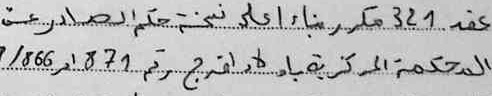 عقد 321 مكرر بناءا على نسخة حكم الصادر عن
المحكمة المركزية باولاد افرج رقم 871 امر 866/